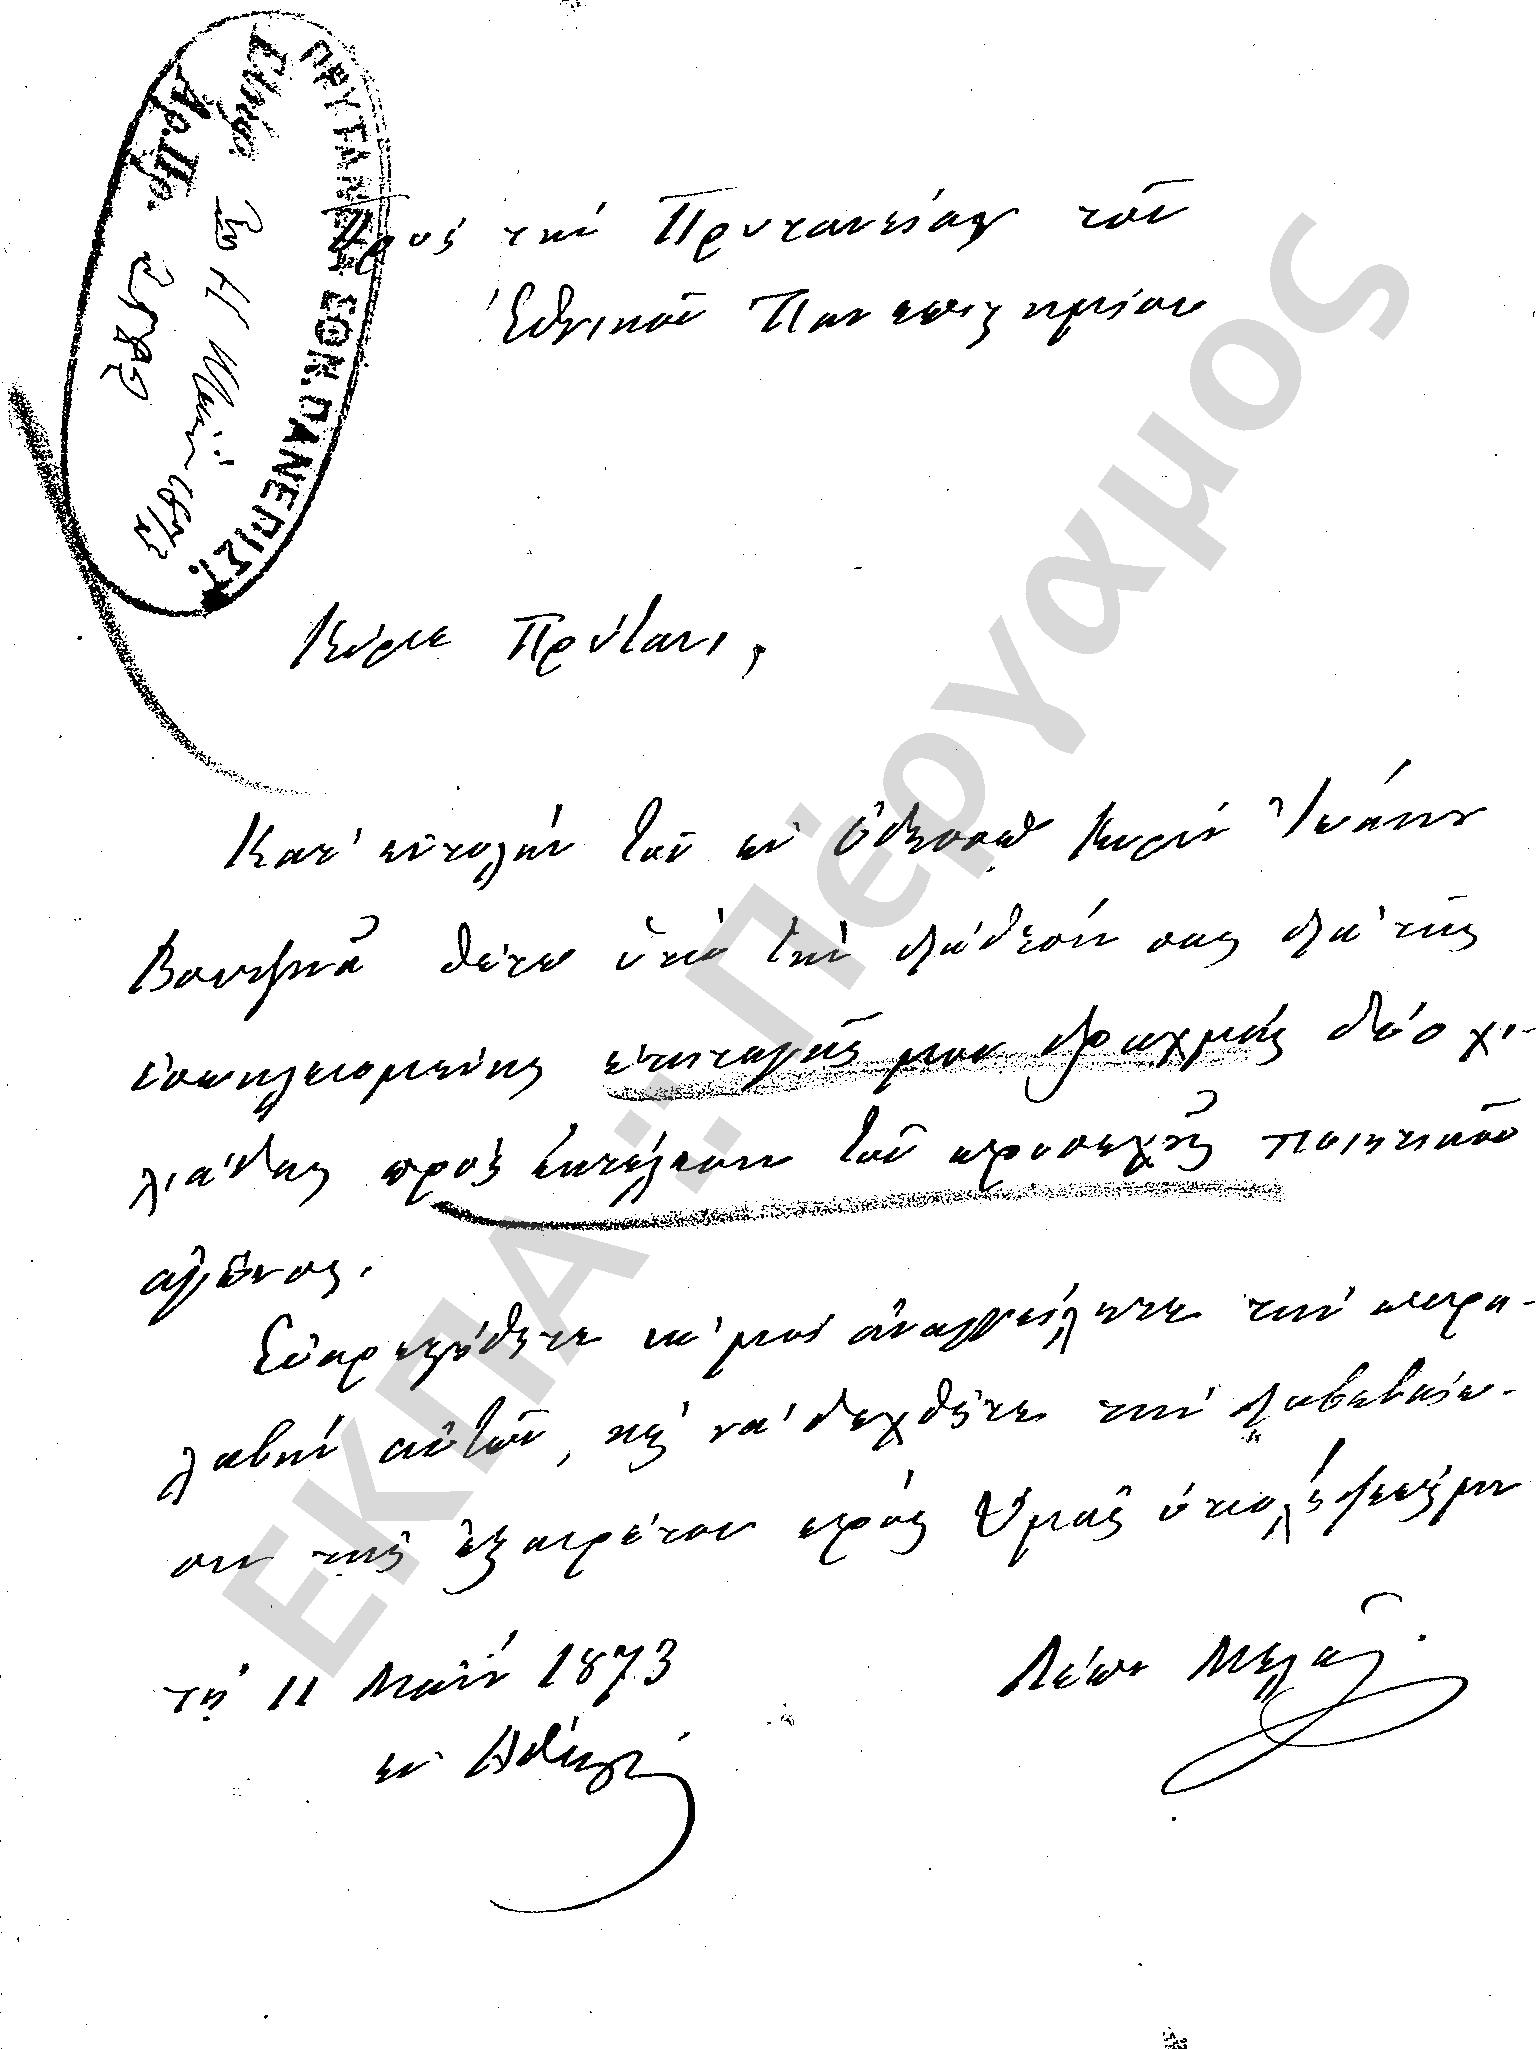 ΠΡΥΤΑΝΕΙΑ ΕΘΝ. ΠΑΝΕΠΙΣΤ.
Ἀρ. Πρ.
Πρὸς τὴν Πρυτανείαν τοῦ
Ἐθνικοῦ Πανεπιστημίου
Κύριε Πρύτανι,
Κατ' ἐντολὴν τοῦ ἐν Ὀδησσῷ Κυρίου Ἰωάννου
Βουτζινᾶ θέτω ὑπὸ τὴν διάθεσίν σας διὰ τῆς
ἐσωκλεισμένης ἐπιταγῆς μου δραχμὰς δύο χι-
λιάδας πρὸς ἐκτέλεσιν τοῦ προσεχοῦς ποιητικοῦ
ἀγῶνος.
Εὐαρεστήθητε νά μοι ἀναγγείλητε τὴν παρα-
λαβὴν αὐτῶν, καὶ νὰ δεχθῆτε τὴν διαβεβαίω-
σιν τῆς ἐξαιρέτου πρὸς Ὑμᾶς ὑπολήψεώς μου
τῇ 11 Μαΐου 1873
ἐν Ἀθήναις
Λέων Μελᾶς
ΕΚΠΑ: Πέργαμος